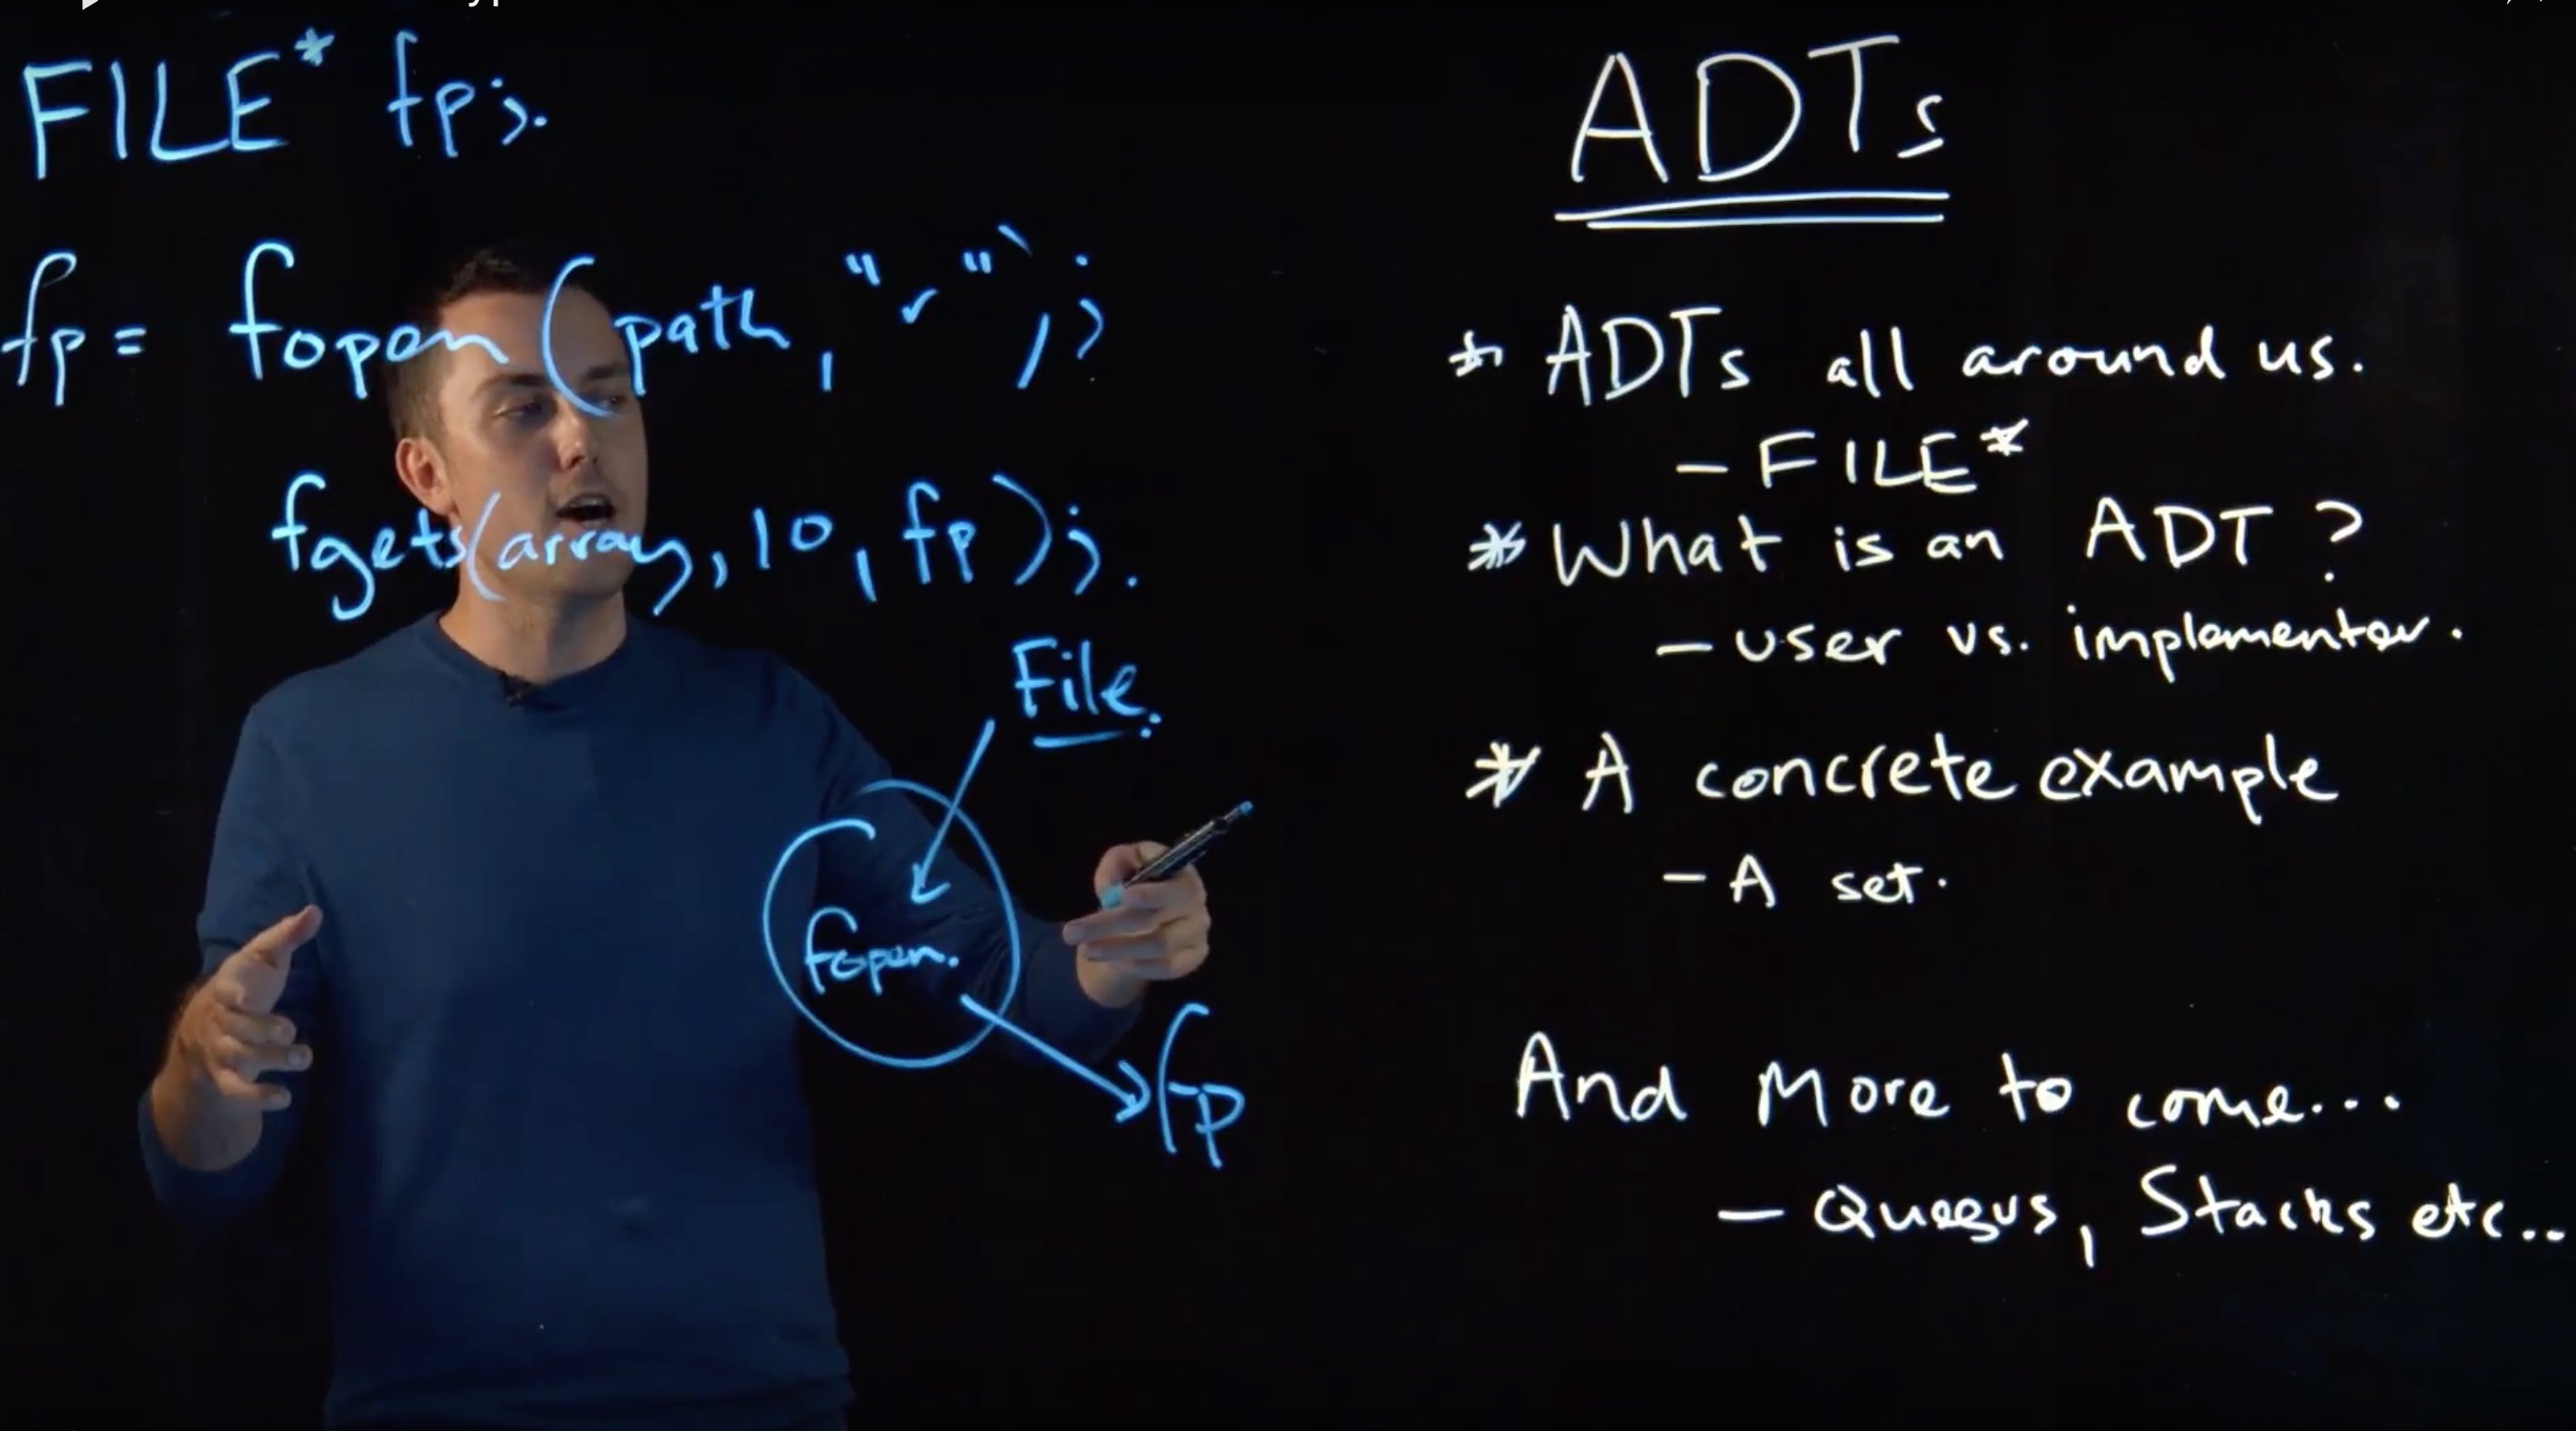 FILE* fp;.
fp = fopen(path, "r");
fgets(array, 10, fp);.
File.
fopen.
fp
ADTs
* ADTs all around us.
- FILE*
* What is an ADT?
- user vs. implementor.
* A concrete example
- A set.
And More to come...
- Queues, Stacks etc..